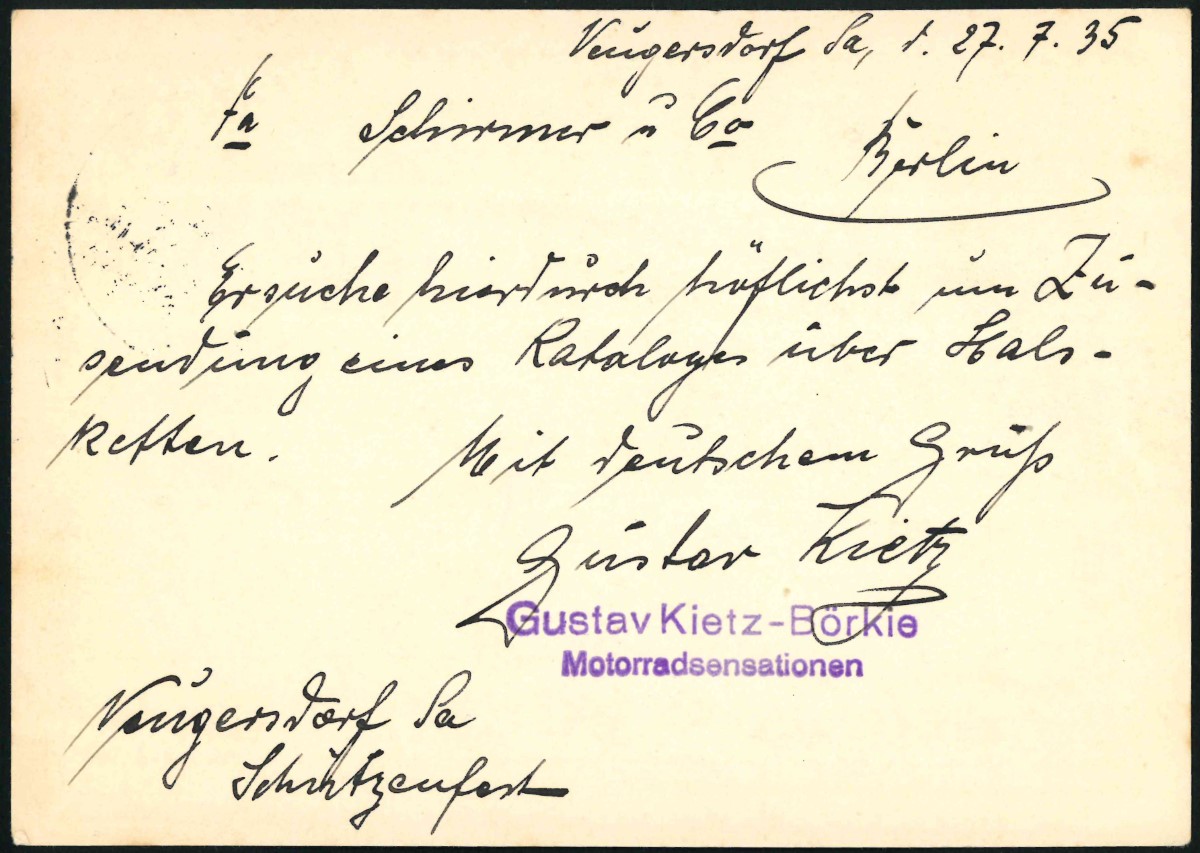 Neugersdorf Sa, d. 27. 7. 35
Fa Schirmer u Co
Berlin
Ersuche hierdurch höflichst um Zu-
sendung eines Kataloges über Hals-
ketten.
Mit deutschem Gruß
Gustav Kietz
Gustav Kietz-Börkie
Motorradsensationen
Neugersdorf Sa
Schützenfest